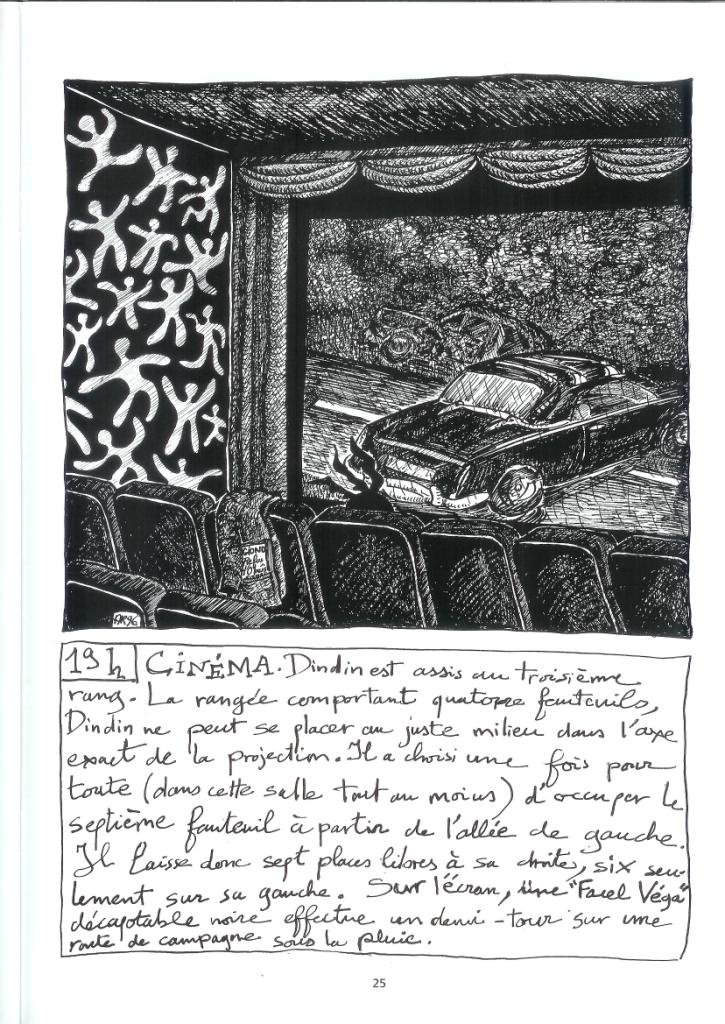 GIONO
AR96
19 h CINÉMA. Dindin est assis au troisième
rang. La rangée comportant quatorze fauteuils,
Dindin ne peut se placer au juste milieu dans l'axe
exact de la projection. Il a choisi une fois pour
toute (dans cette salle tout au moins) d'occuper le
septième fauteuil à partir de l'allée de gauche.
Il laisse donc sept places libres à sa droite, six seu-
lement sur sa gauche. Sur l'écran, une "Facel Véga"
décapotable noire effectue un demi-tour sur une
route de campagne sous la pluie.
25